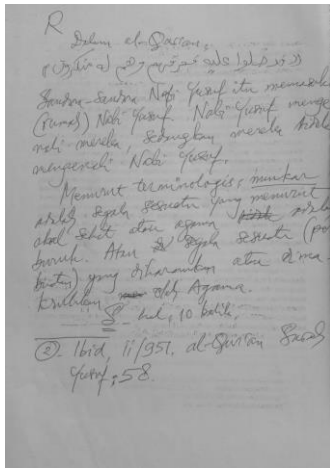 R
Dalam al-Qur'an,
فدخلوا عليه فعرفهم وهم له منكرون
Saudra-Saudra Nabi Yusuf itu memasuki
(rumah) Nabi Yusuf. Nabi Yusuf menge
nali mereka, sedangkan mereka tidak
mengenali Nabi Yusuf.
Menurut terminologis, munkar
adalah segala sesuatu yang menurut
akal sehat atau agama adalah
buruk. Atau segala sesuatu (per
buatan) yang diharamkan atau dima-
kruhkan oleh Agama.
hal, 10 balik,
②. Ibid, II/951. al-Qur'an Surah
Yusuf: 58.